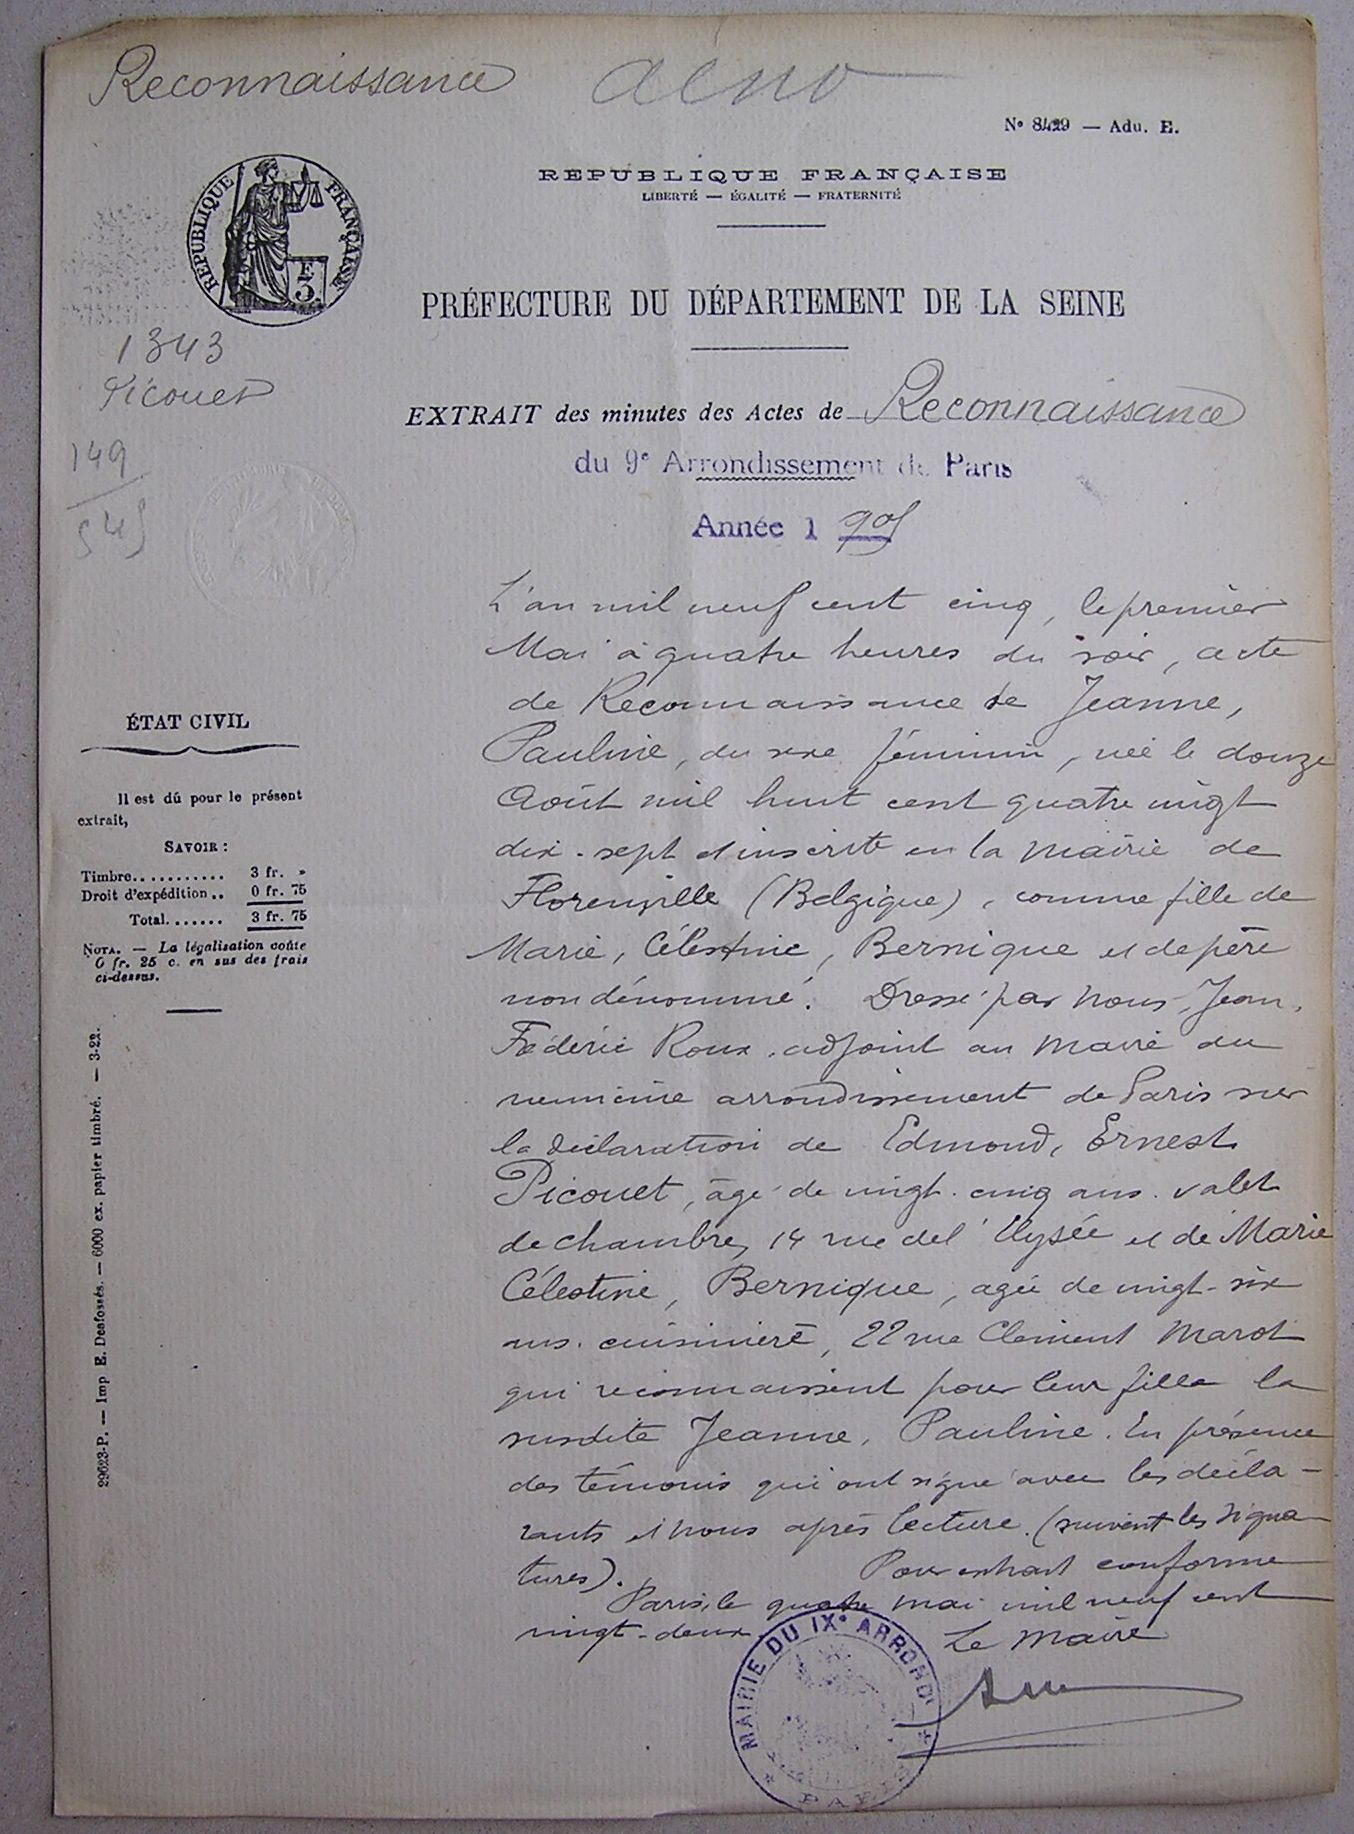 Reconnaissance
No 8429 — Adu. E.
RÉPUBLIQUE FRANÇAISE
LIBERTÉ — ÉGALITÉ — FRATERNITÉ
RÉPUBLIQUE FRANÇAISE
F
3
PRÉFECTURE DU DÉPARTEMENT DE LA SEINE
1343
Picouet
EXTRAIT des minutes des Actes de Reconnaissance
du 9e Arrondissement de Paris
149
545
Année 1905
L'an mil neuf cent cinq, le premier
Mai à quatre heures du soir, acte
de Reconnaissance de Jeanne,
Pauline, du sexe féminin, née le douze
Août mil huit cent quatre vingt
dix-sept et inscrite en la mairie de
Florenville (Belgique), comme fille de
Marie, Célestine, Bernique et de père
non dénommé. Dressé par nous, Jean,
Fédéric Roux, adjoint au maire du
neuvième arrondissement de Paris sur
la déclaration de Edmond, Ernest
Picouet, âgé de vingt-cinq ans, valet
de chambre, 14 rue de l'Elysée et de Marie
Célestine, Bernique, agée de vingt-six
ans, cuisinière, 22 rue Clément Marot
qui reconnaissent pour leur fille la
susdite Jeanne, Pauline. En présence
des témoins qui ont signé avec les décla-
rants et nous après lecture. (suivent les signa-
tures). Pour extrait conforme
Paris, le quatre mai mil neuf cent
vingt-deux.
Le Maire
MAIRIE DU IXe ARRONDt
PARIS
ÉTAT CIVIL
Il est dû pour le présent
extrait,
SAVOIR :
Timbre........... 3 fr. »
Droit d'expédition.. 0 fr. 75
Total....... 3 fr. 75
NOTA. — La légalisation coûte
0 fr. 25 c. en sus des frais
ci-dessus.
29623-P. — Imp E. Desfossés. — 6000 ex. papier timbré. — 3-22.